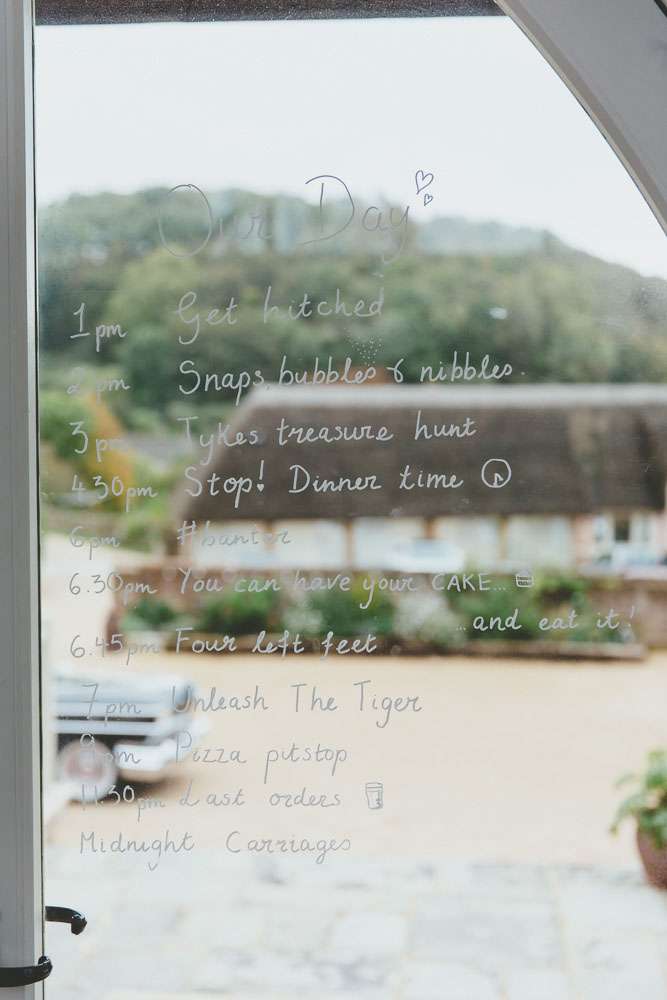 Our Day
1pm Get hitched
2pm Snaps, bubbles & nibbles.
3pm Tykes treasure hunt
4.30pm Stop! Dinner time
6pm #banter
6.30pm You can have your CAKE...
...and eat it!
6.45pm Four left feet
7pm Unleash The Tiger
9pm Pizza pitstop
11.30pm Last orders
Midnight Carriages